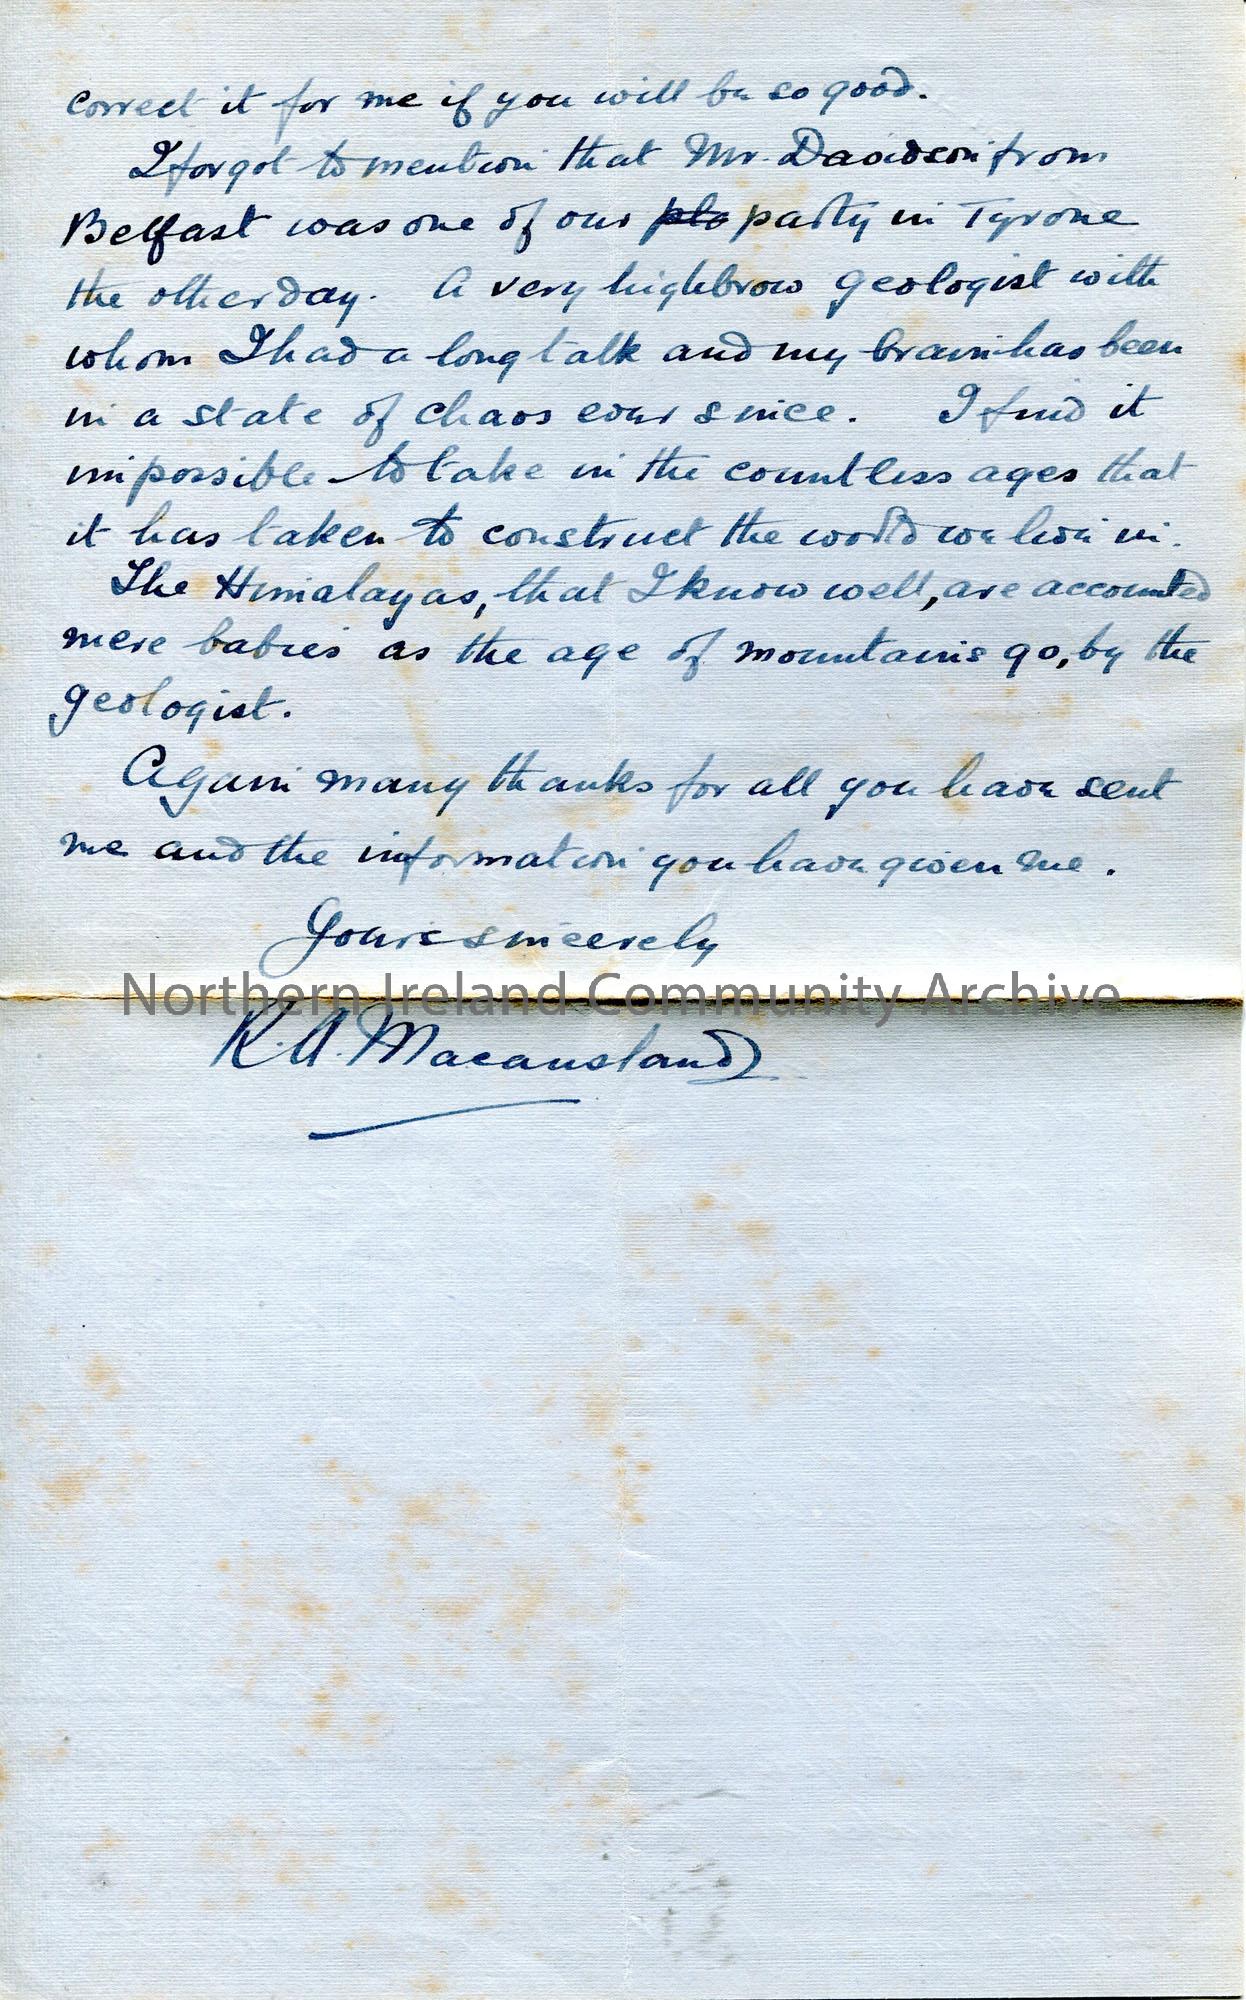 correct it for me if you will be so good.
I forgot to mention that Mr. Davidson from
Belfast was one of our plo party in Tyrone
the other day. A very highbrow geologist with
whom I had a long talk and my brain has been
in a state of chaos ever since. I find it
impossible to take in the countless ages that
it has taken to construct the world we live in.
The Himalayas, that I know well, are accounted
mere babies as the age of mountains go, by the
geologist.
Again many thanks for all you have sent
me and the information you have given me.
Yours sincerely
Northern Ireland Community Archive
R.A. Macausland